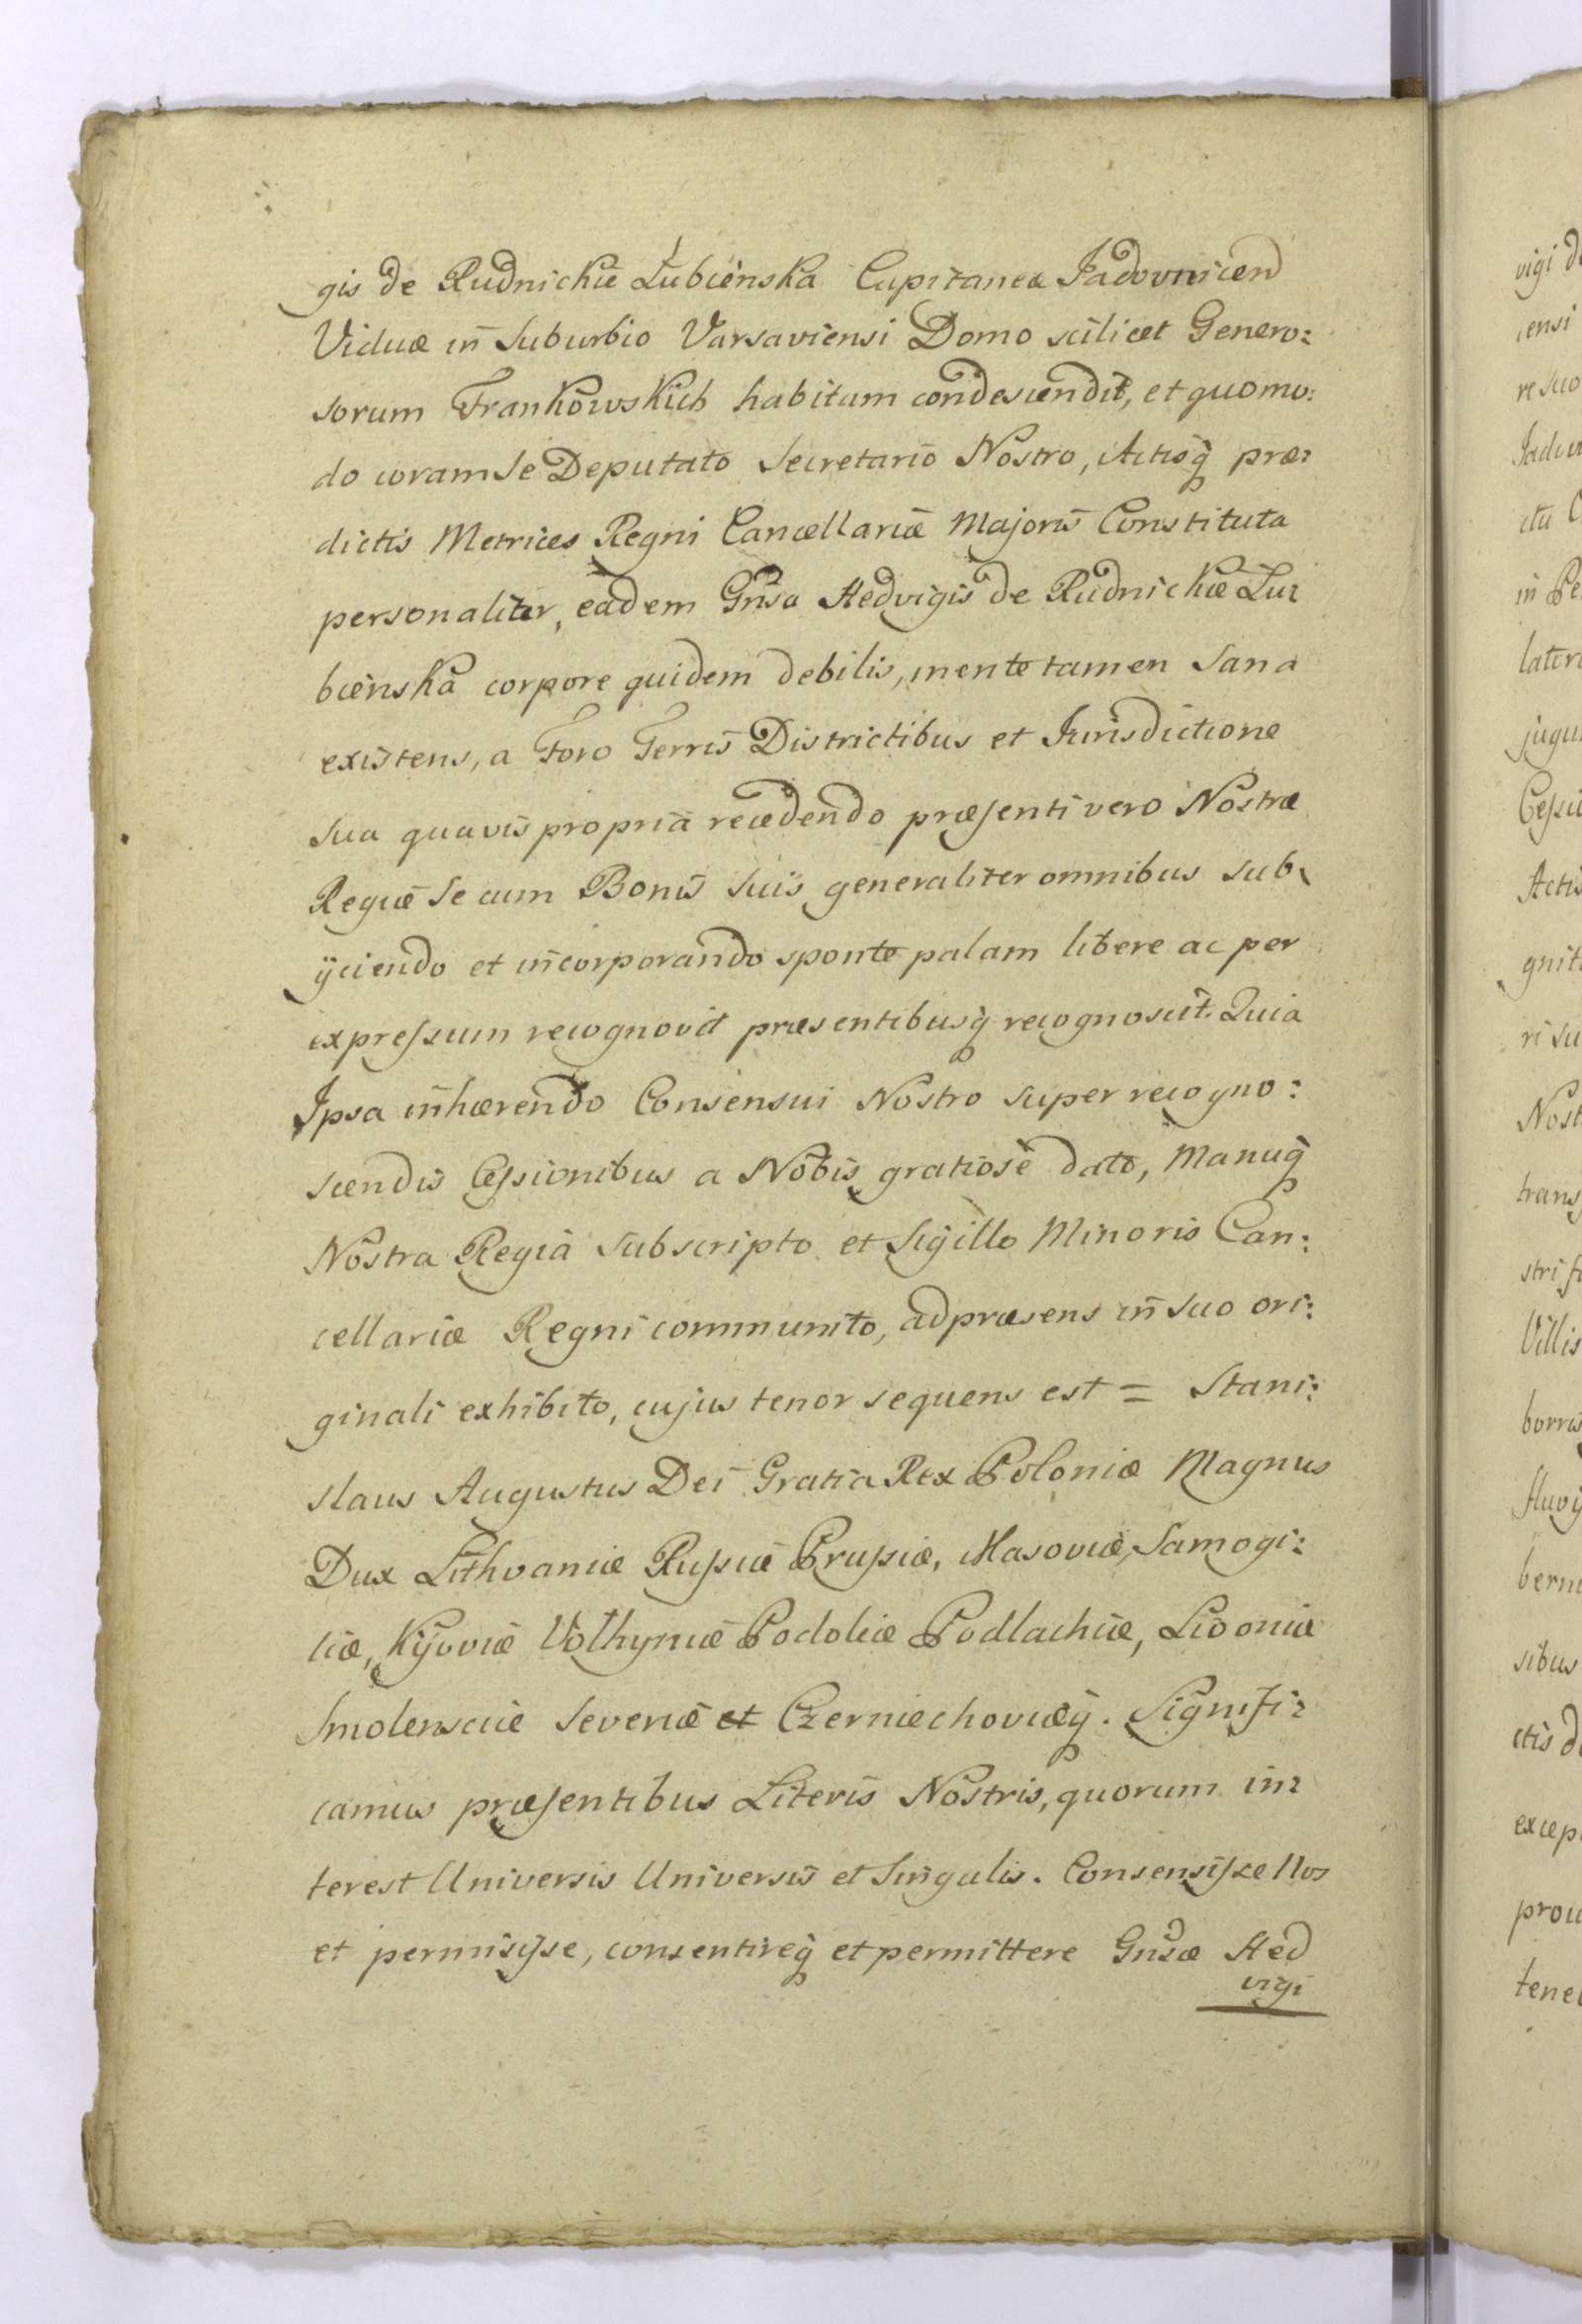 gis de Rudnickie Łubienska Capitanea Jadovnicen
Viduæ in Suburbio Varsaviensi Domo scilicet Genero:
sorum Frankowskich habitam condescendit, et quomo:
do coram Se Deputato Secretario Nostro, Actisq præ:
dictis Metrices Regni Cancellariæ Majoris Constituta
personaliter, eadem Gnsa Hedvigis de Rudnickie Lu:
bienska corpore quidem debilis, mente tamen Sana
existens, a Foro Terris Districtibus et Jurisdictione
Sua quavis propria recedendo præsenti vero Nostræ
Regiæ Se cum Bonis Suis generaliter omnibus Sub,
ijciendo et incorporando sponte palam libere ac per
expressum recognovit præsentibusq recognoscit. Quia
Ipsa inhærendo Consensui Nostro super recogno:
scendis Cessionibus a Nobis gratiose dato, Manuq
Nostra Regia Subscripto et Sigillo Minoris Can:
cellariæ Regni communito, ad præsens in Suo ori:
ginali exhibito, cujus tenor sequens est = Stani:
slaus Augustus Dei Gratia Rex Poloniæ Magnus
Dux Lithvaniæ Russiæ Prussiæ, Masoviæ, Samogi:
tiæ, Kijoviæ Volhyniæ Podoliæ Podlachiæ, Livoniæ
Smolensciæ Severiæ et Czerniechoviæq. Signifi:
camus præsentibus Literis Nostris, quorum in:
terest Universis Universis et Singulis. Consensisse Nos
et permisisse, consentireq et permittere Gnsæ Hed
vigi